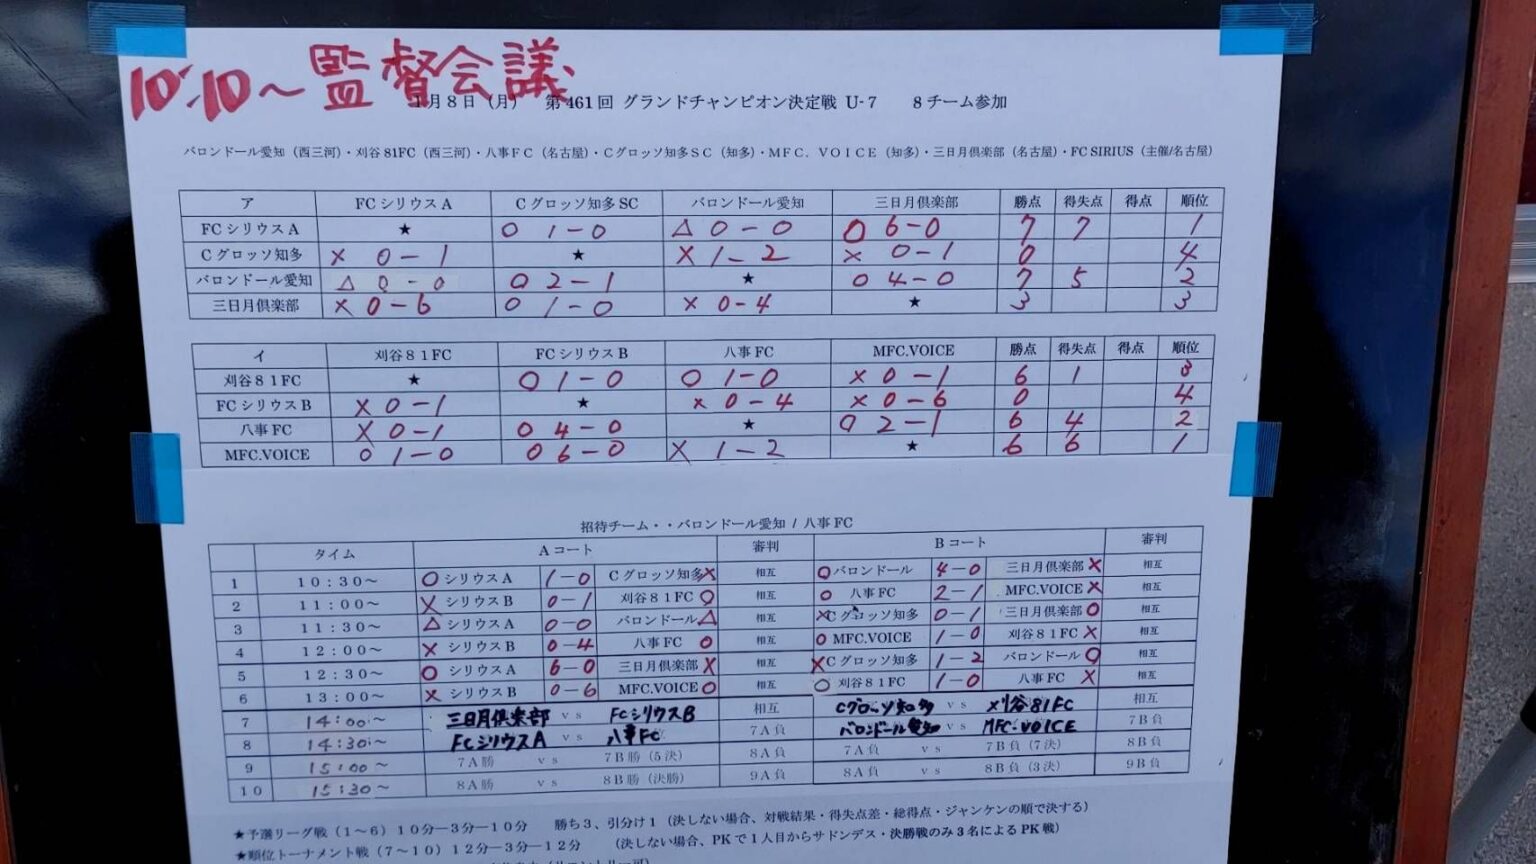 10:10～監督会議
1月8日（月） 第461回 グランドチャンピオン決定戦 U-7 8チーム参加
バロンドール愛知（西三河）・刈谷81FC（西三河）・八事FC（名古屋）・Cグロッソ知多SC（知多）・MFC．VOICE（知多）・三日月倶楽部（名古屋）・FC SIRIUS（主催/名古屋）
ア FCシリウスA Cグロッソ知多SC バロンドール愛知 三日月倶楽部 勝点 得失点 得点 順位
FCシリウスA ★ ○ 1-0 △ 0-0 ○ 6-0 7 7 1
Cグロッソ知多 × 0-1 ★ × 1-2 × 0-1 0 4
バロンドール愛知 △ 0-0 ○ 2-1 ★ ○ 4-0 7 5 2
三日月倶楽部 × 0-6 ○ 1-0 × 0-4 ★ 3 3
イ 刈谷81FC FCシリウスB 八事FC MFC.VOICE 勝点 得失点 得点 順位
刈谷81FC ★ ○ 1-0 ○ 1-0 × 0-1 6 1 3
FCシリウスB × 0-1 ★ × 0-4 × 0-6 0 4
八事FC × 0-1 ○ 4-0 ★ ○ 2-1 6 4 2
MFC.VOICE ○ 1-0 ○ 6-0 × 1-2 ★ 6 6 1
招待チーム・・バロンドール愛知 / 八事FC
タイム Aコート 審判 Bコート 審判
1 10:30～ ○ シリウスA 1-0 Cグロッソ知多 × 相互 ○ バロンドール 4-0 三日月倶楽部 × 相互
2 11:00～ × シリウスB 0-1 刈谷81FC ○ 相互 ○ 八事FC 2-1 MFC.VOICE × 相互
3 11:30～ △ シリウスA 0-0 バロンドール △ 相互 × Cグロッソ知多 0-1 三日月倶楽部 ○ 相互
4 12:00～ × シリウスB 0-4 八事FC ○ 相互 ○ MFC.VOICE 1-0 刈谷81FC × 相互
5 12:30～ ○ シリウスA 6-0 三日月倶楽部 × 相互 × Cグロッソ知多 1-2 バロンドール ○ 相互
6 13:00～ × シリウスB 0-6 MFC.VOICE ○ 相互 ○ 刈谷81FC 1-0 八事FC × 相互
7 14:00～ 三日月倶楽部 vs FCシリウスB 相互 Cグロッソ知多 vs 刈谷81FC 相互
8 14:30～ FCシリウスA vs 八事FC 7A負 バロンドール愛知 vs MFC.VOICE 7B負
9 15:00～ 7A勝 vs 7B勝（5決） 8A負 7A負 vs 7B負（7決） 8B負
10 15:30～ 8A勝 vs 8B勝（決勝） 9A負 8A負 vs 8B負（3決） 9B負
★予選リーグ戦（1～6）10分―3分―10分 勝ち3、引分け1（決しない場合、対戦結果・得失点差・総得点・ジャンケンの順で決する）
★順位トーナメント戦（7～10）12分―3分―12分 （決しない場合、PKで1人目からサドンデス・決勝戦のみ3名によるPK戦）